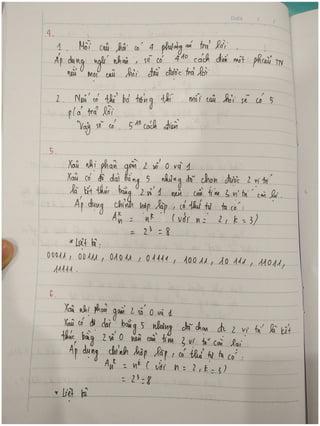 4.
1. Mỗi câu hỏi có 4 phương án trả lời.
Áp dụng nghĩ nhân, sẽ có 4^10 cách điền một phiếu TN
nếu mọi câu hỏi đều được trả lời
2. Nếu có thể bỏ trống thì mỗi câu hỏi sẽ có 5
p/á trả lời
Vậy sẽ có 5^10 cách điền
5.
Xâu nhị phân gồm 2 số 0 và 1
Xâu có độ dài bằng 5 nhưng đã chọn được 2 vị trí
là kết thúc bằng 2 số 1 nên còn tìm 3 vị trí còn lại.
Áp dụng chỉnh hợp lặp, có thứ tự ta có:
A^k_n = n^k (với n = 2, k = 3)
= 2^3 = 8
* Liệt kê:
00011, 00111, 01011, 01111, 10011, 10111, 11011,
11111.
6
Xâu nhị phân gồm 2 số 0 và 1
Xâu có độ dài bằng 5 nhưng đã chọn đc 2 vị trí là kết
thúc bằng 2 số 0 nên còn tìm 3 vị trí còn lại
Áp dụng chỉnh hợp lặp, có thứ tự ta có:
A^k_n = n^k (với n = 2, k = 3)
= 2^3 = 8
* Liệt kê